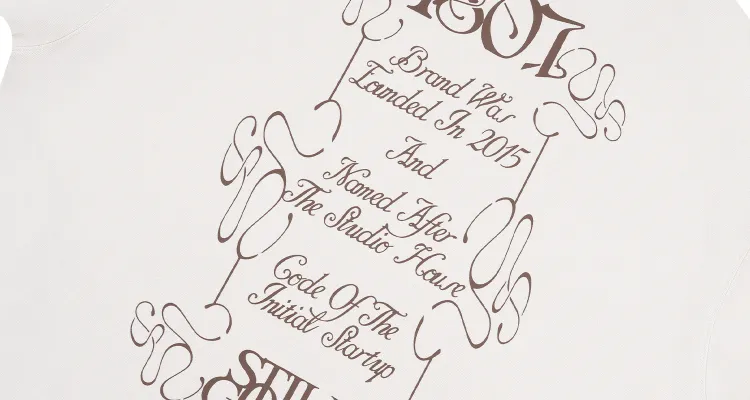 Brand Was
Founded In 2015
And
Named After
The Studio House
Code Of The
Initial Startup